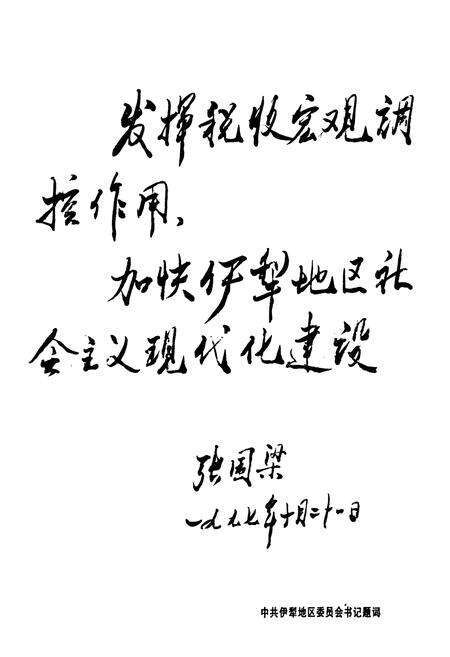 发挥税收宏观調
控作用、
加快伊犁地区社
会主义现代化建设
张国梁
一九九七年十月二十一日
中共伊犁地区委员会书记题词